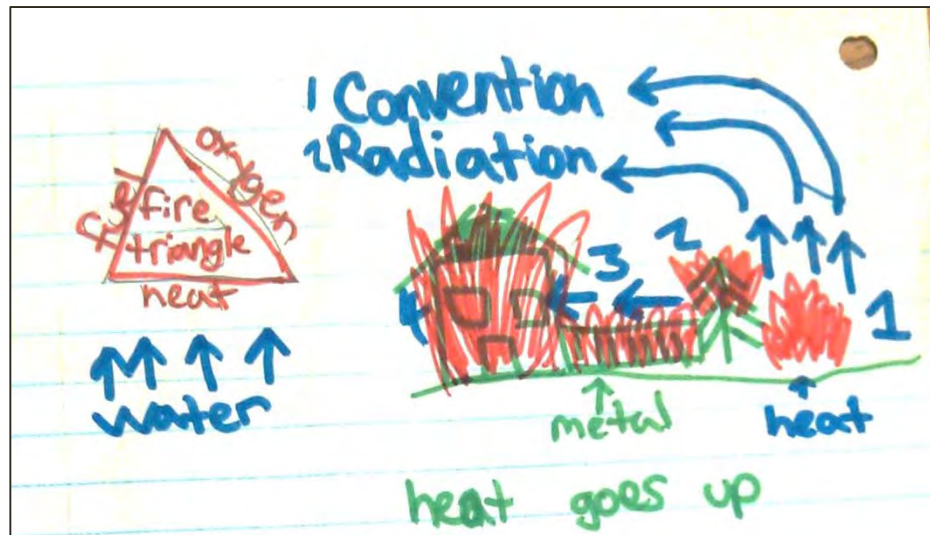 1 Convention
2 Radiation
fuel
oxygen
fire
triangle
heat
water
4
3
2
1
metal
heat
heat goes up